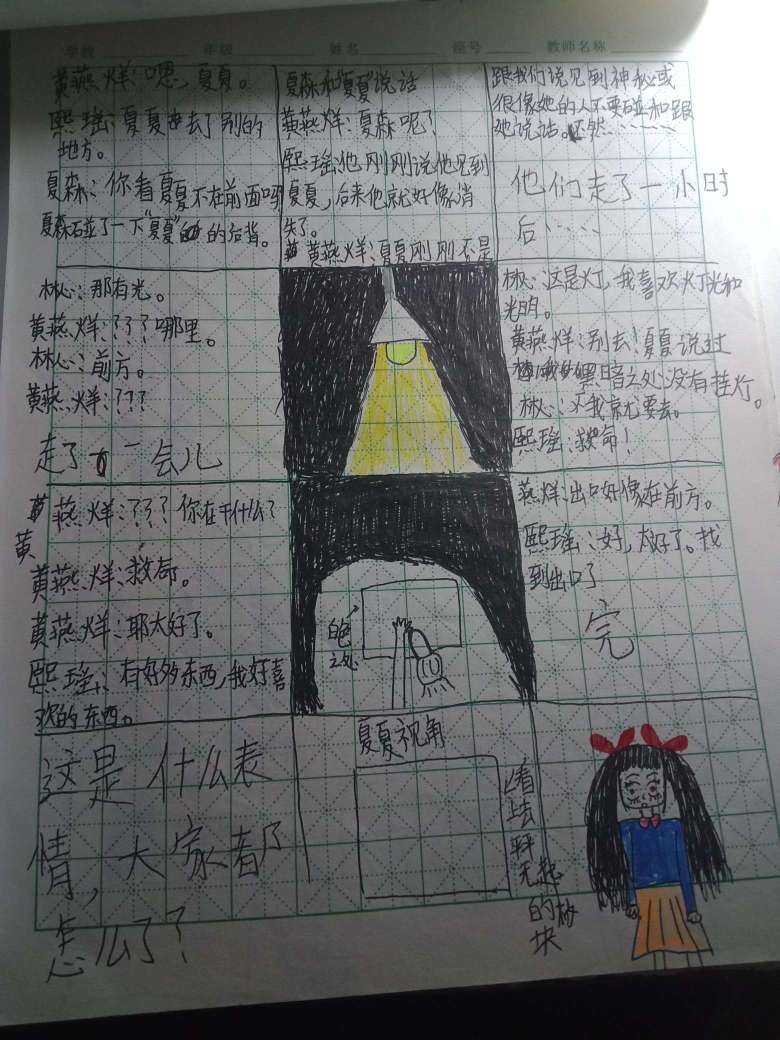 学校 年级 姓名 座号 教师名称
黄燕烊:嗯,夏夏。
熙瑶:夏夏去了别的
地方。
夏森:你看夏夏不在前面吗
夏森碰了一下"夏夏"的后背。
夏森和"夏夏"说话
黄燕烊:夏森呢?
熙瑶:他刚刚说他见到
夏夏,后来他就好像消
失了。
黄燕烊:夏夏刚刚不是
跟我们说见到神秘或
很像她的人不要碰和跟
她说话。不然……
他们走了一小时
后……
林心:那有光。
黄燕烊:???哪里。
林心:前方。
黄燕烊:???
走了一会儿
林心:这是灯,我喜欢灯光和
光明。
黄燕烊:别去!夏夏说过
黑暗之处没有挂灯。
林心:不我就要去。
熙瑶:救命!
黄燕烊:???你在干什么?
黄
黄燕烊:救命。
黄燕烊:耶太好了。
熙瑶:有好多东西,我好喜
欢的东西。
白色
燕烊:出口好像在前方。
熙瑶:好,太好了。找
到出口了
完
这是什么表
情,大家都
怎么了?
夏夏视角
看
起
的
块